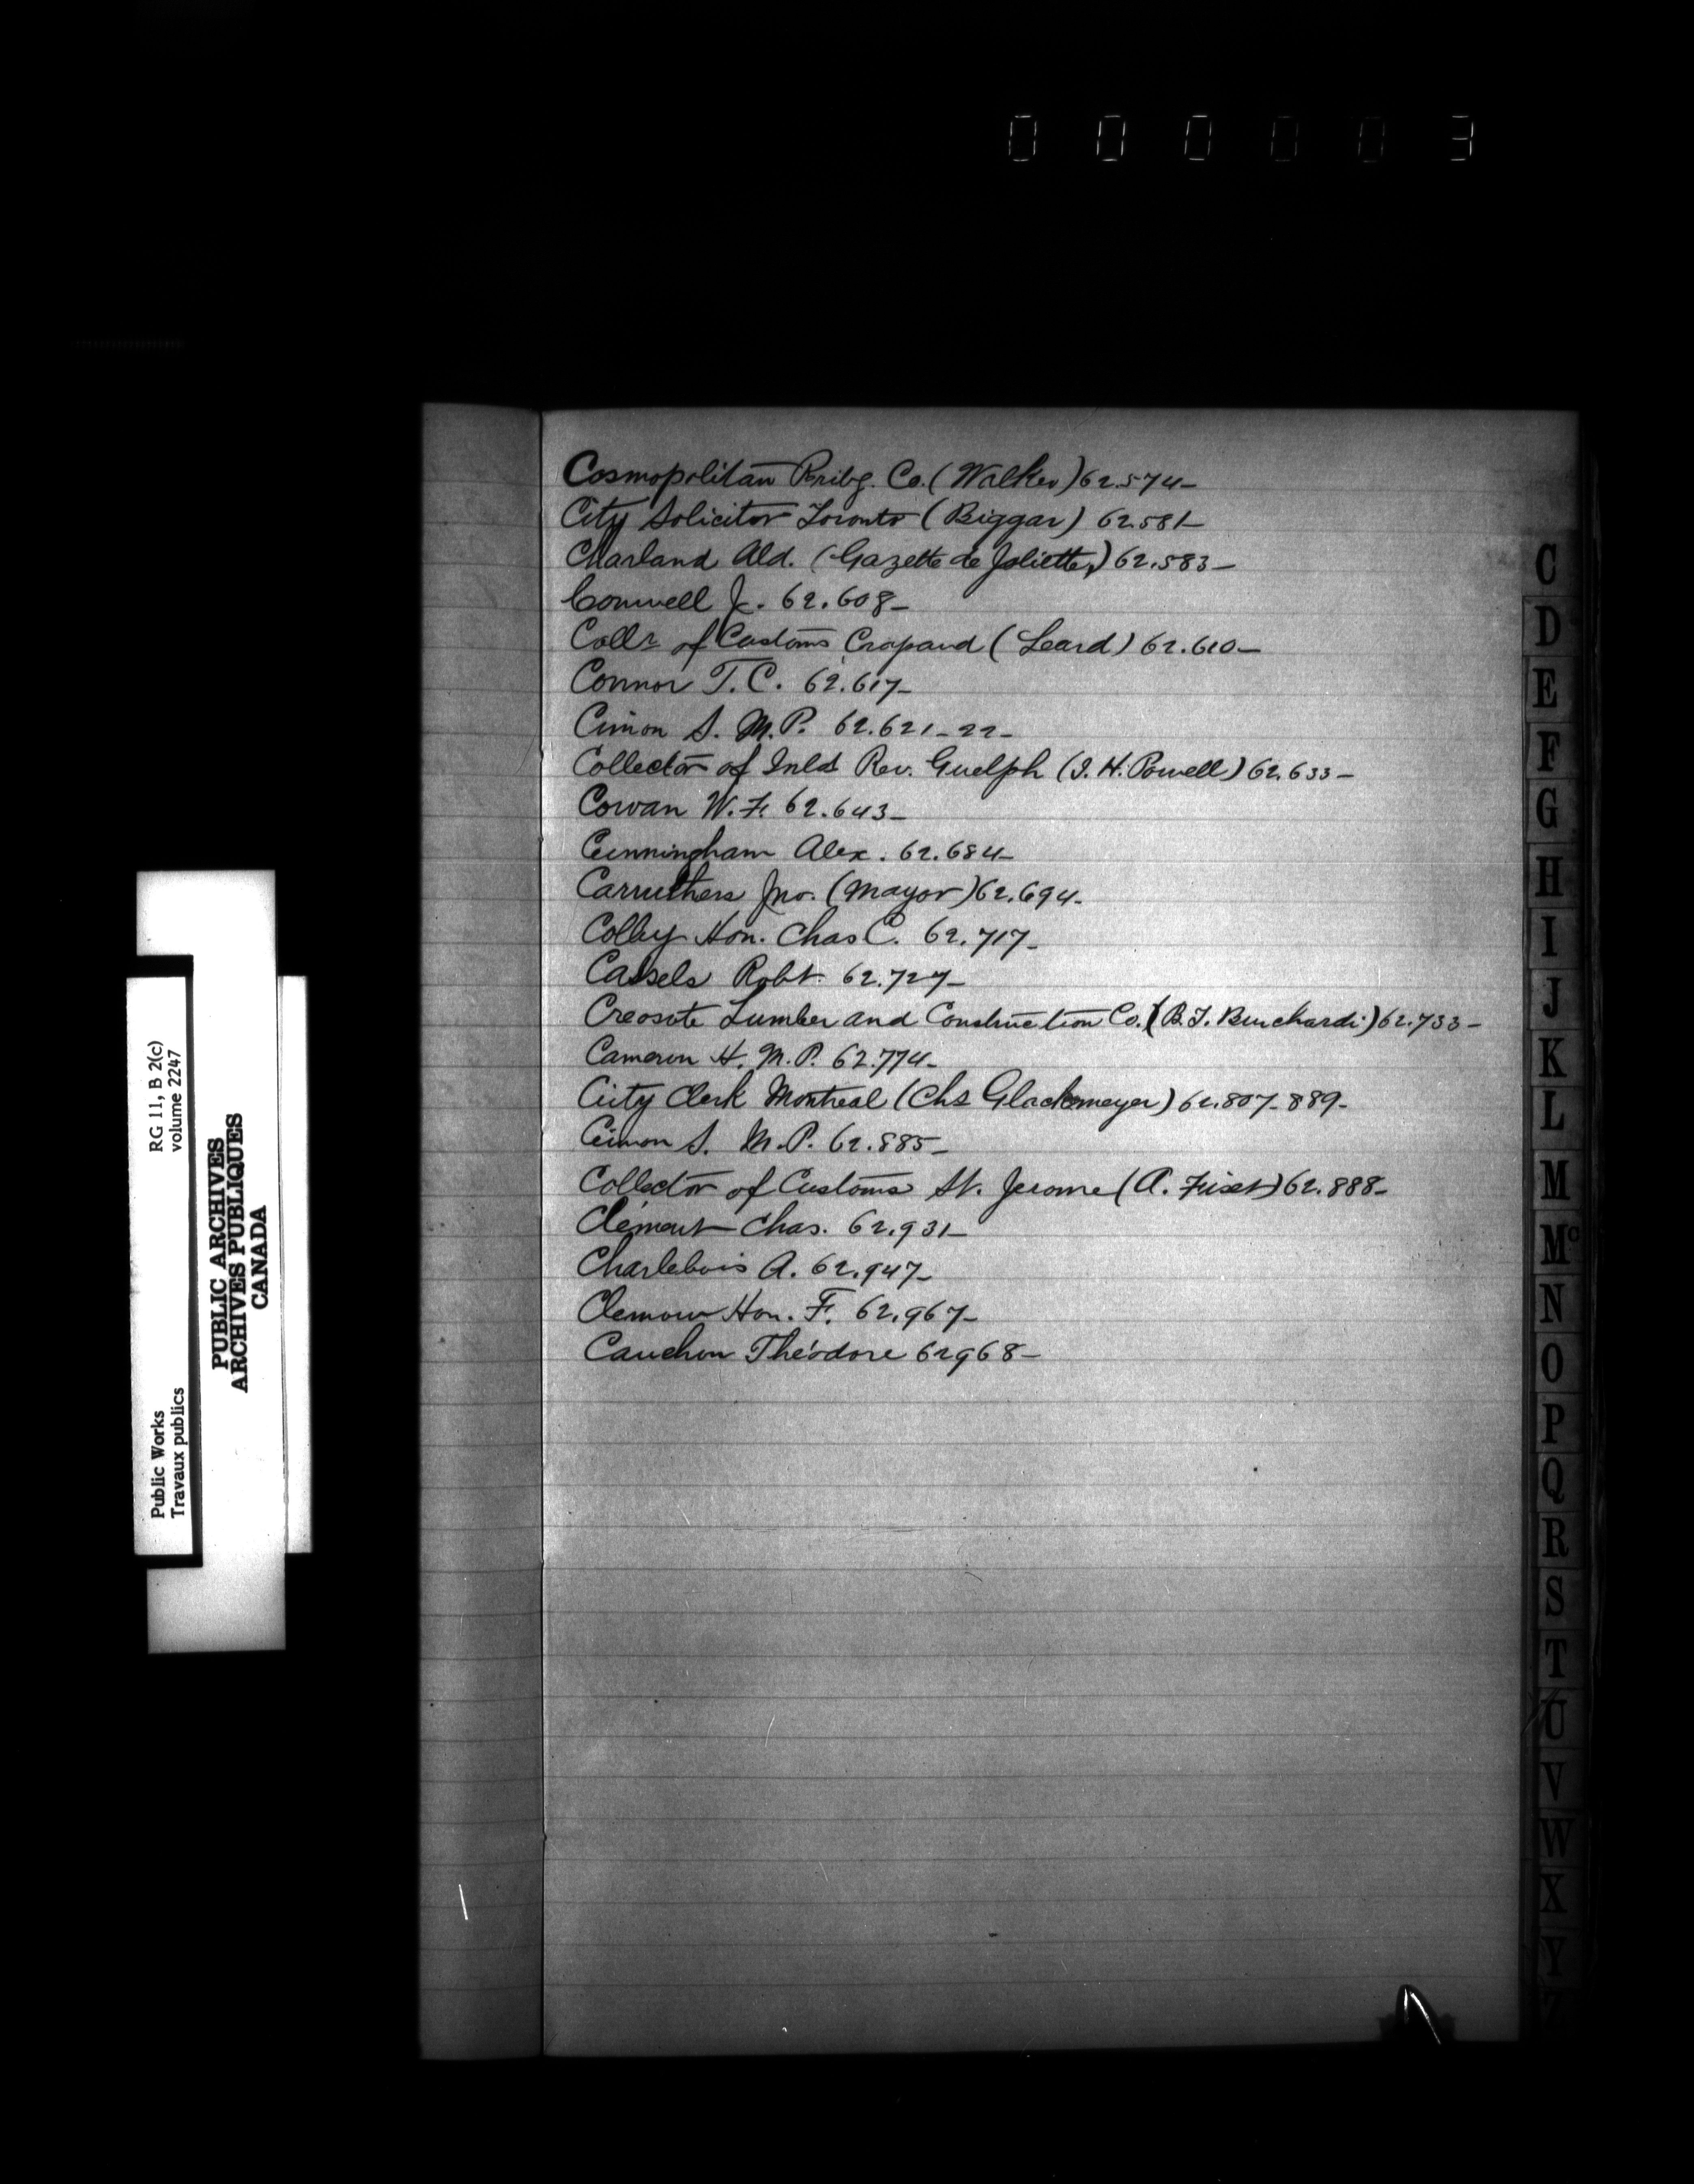 000003
Cosmopolitan Co. (Walker) 62.574-
City Solicitor Toronto (Biggar) 62.581-
Charland Ald. (Gazette de Joliette,) 62.583-
Conwell J. 62.608-
Collr of Customs Crapaud (Leard) 62.610-
Connor T.C. 62.617-
Cimon S. M.P. 62.621-22-
Collector of Inld Rev. Guelph (J.H. Powell) 62.633-
Cowan W.F. 62.643-
Cunningham Alex. 62.684-
Carruthers Jno. (Mayor) 62.694-
Colby Hon. Chas C. 62.717-
Cassels Robt. 62.727-
Creosote Lumber and Construction Co. (B.J. Burchardi) 62.733-
Cameron H. M.P. 62.774-
City Clerk Montreal (Chs Glackmeyer) 62.807-889-
Cimon S. M.P. 62.885-
Collector of Customs St. Jerome (A. Fiset) 62.888-
Clément Chas. 62.931-
Charlebois A. 62.947-
Clemow Hon. F. 62.967-
Cauchon Théodore 62968-
C
D
E
F
G
H
I
J
K
L
M
Mc
N
O
P
Q
R
S
T
U
V
W
X
Y
Z
Public Works
Travaux publics
RG 11, B 2(c)
volume 2247
PUBLIC ARCHIVES
ARCHIVES PUBLIQUES
CANADA